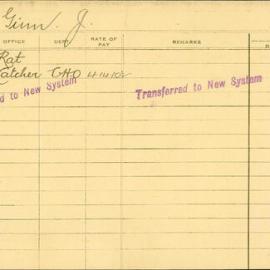 Ginn. J.
OFFICE DEPT. RATE OF PAY REMARKS
Rat
Catcher CHO
ed to New System Transferred to New System